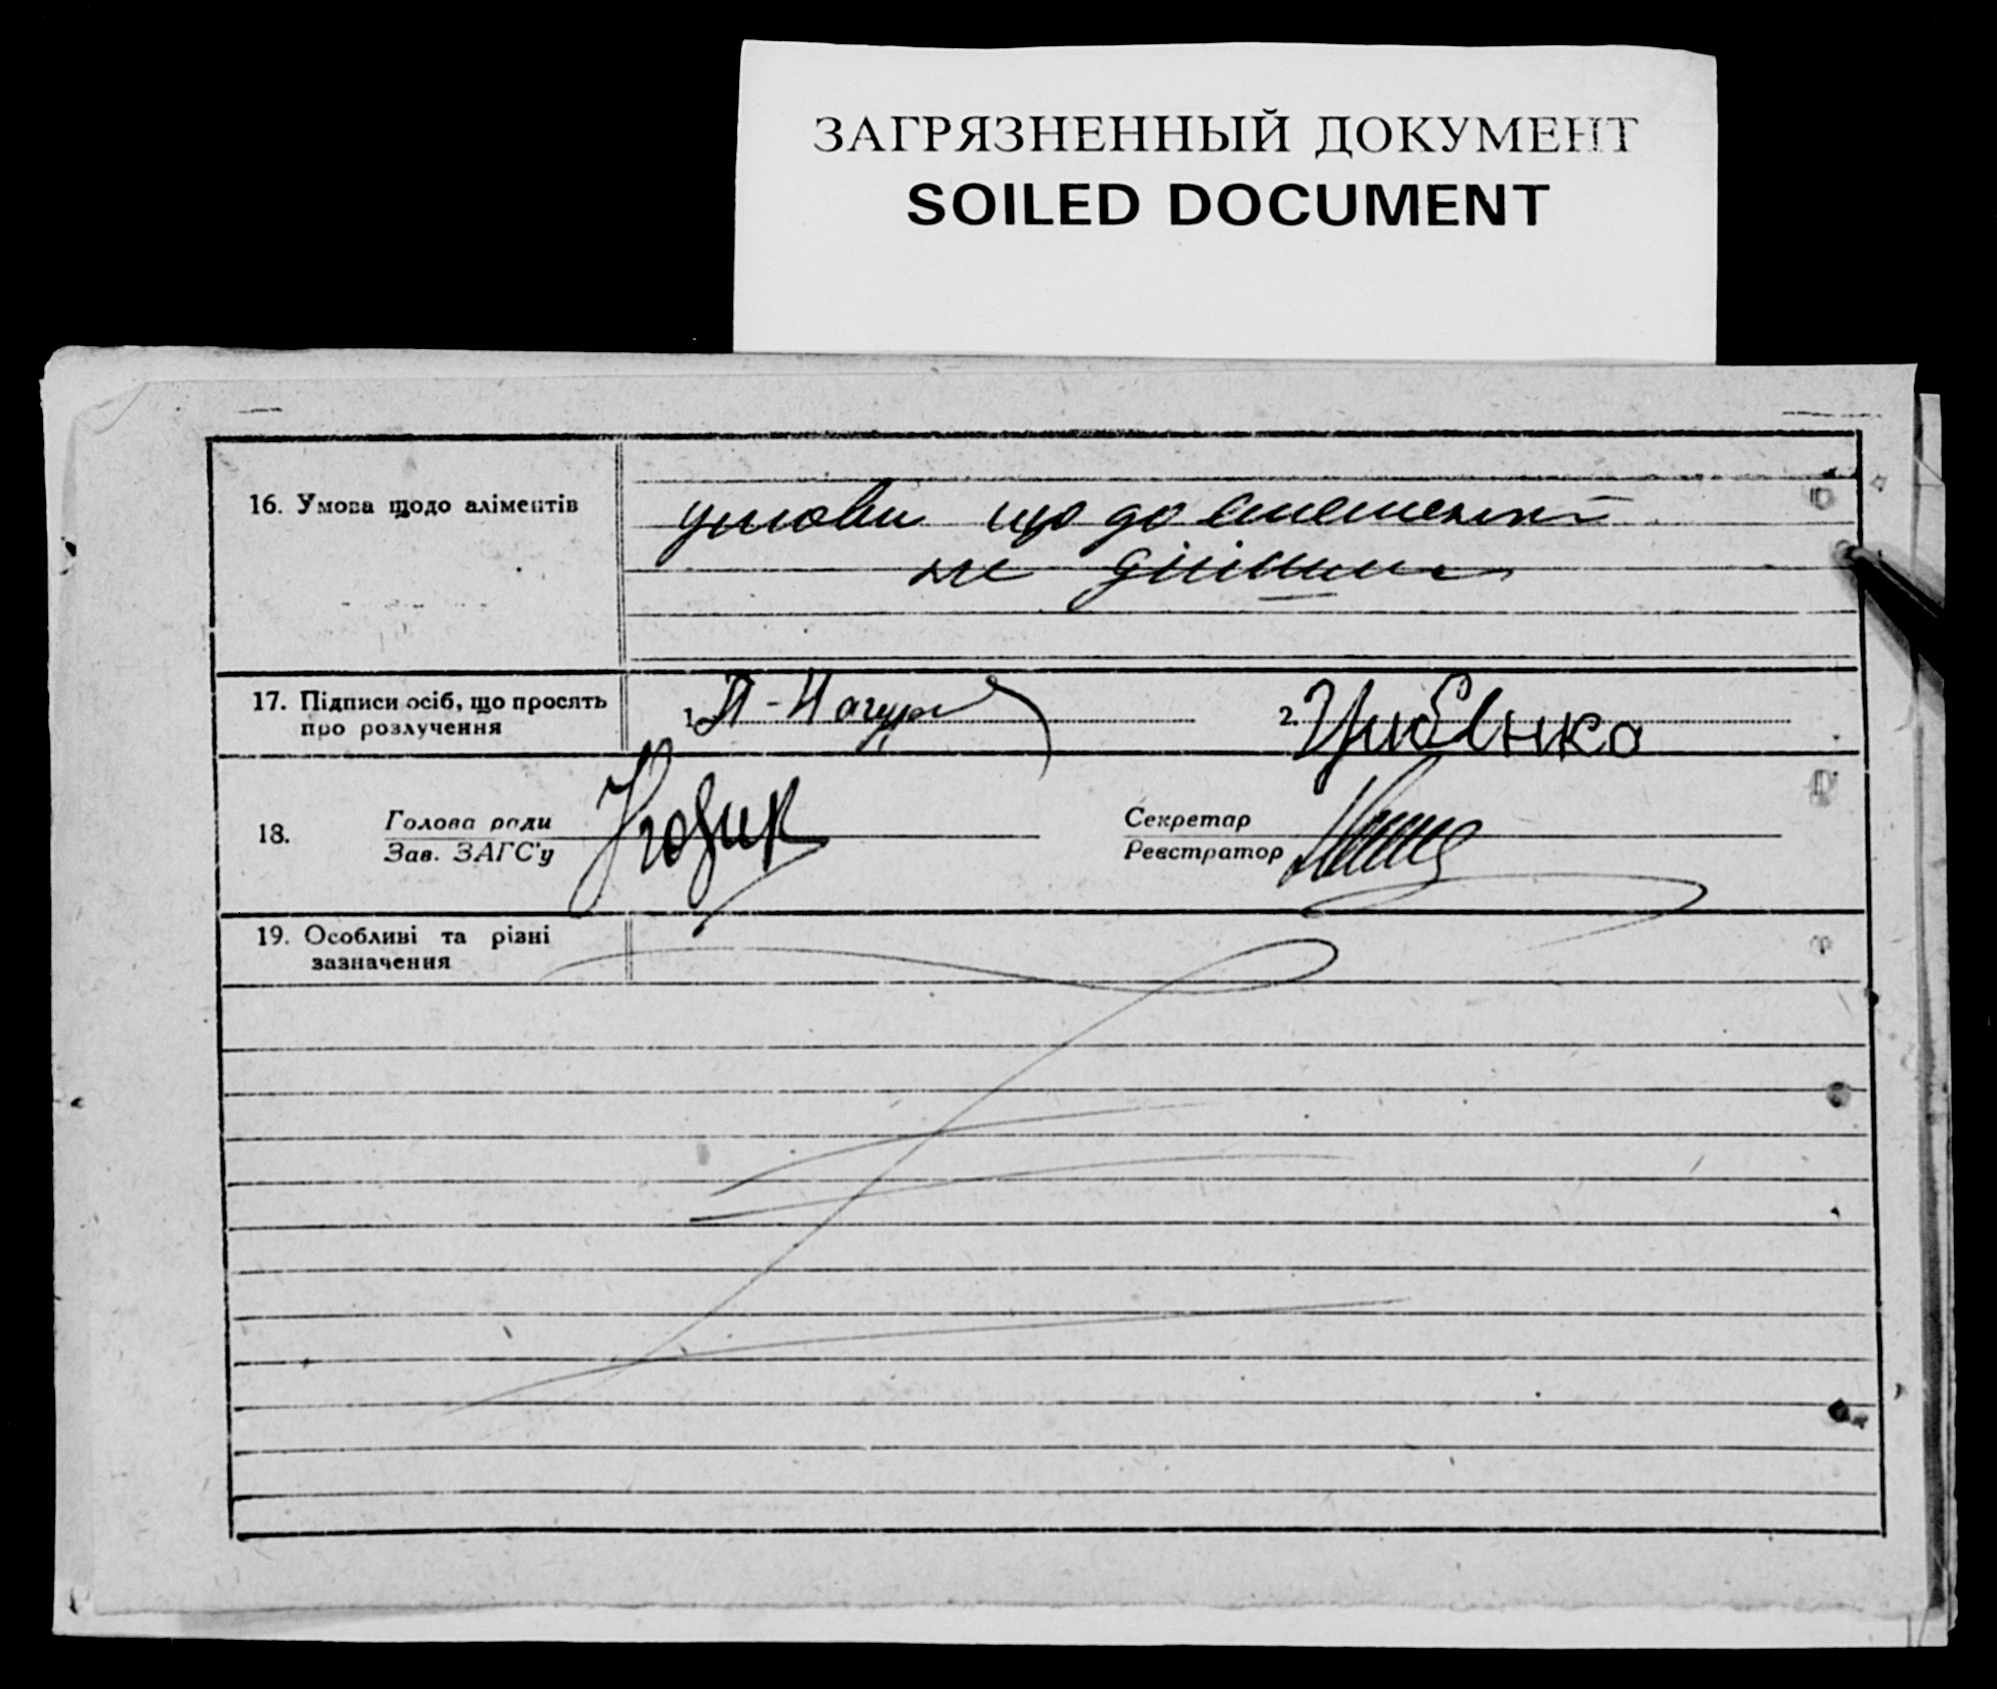 ЗАГРЯЗНЕННЫЙ ДОКУМЕНТ
SOILED DOCUMENT
16. Умова щодо аліментів
умови що до
не
17. Підписи осіб, що просять
про розлучення
1.
2.
18.
Голова ради
Зав. ЗАГС'у
Секретар
Реєстратор
19. Особливі та різні
зазначення